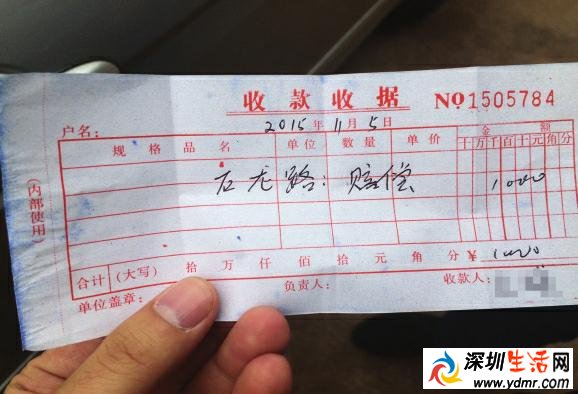 收款收据 NO 1505784
户名： 2015年11月5日
规格品名 单位 数量 单价 金额
十万千百十元角分
石龙路：赔偿 1000
合计 (大写) 拾 万 仟 佰 拾 元 角 分 ¥ 1000
单位盖章： 负责人： 收款人：
(内部使用)
深圳生活网
www.ydmr.com